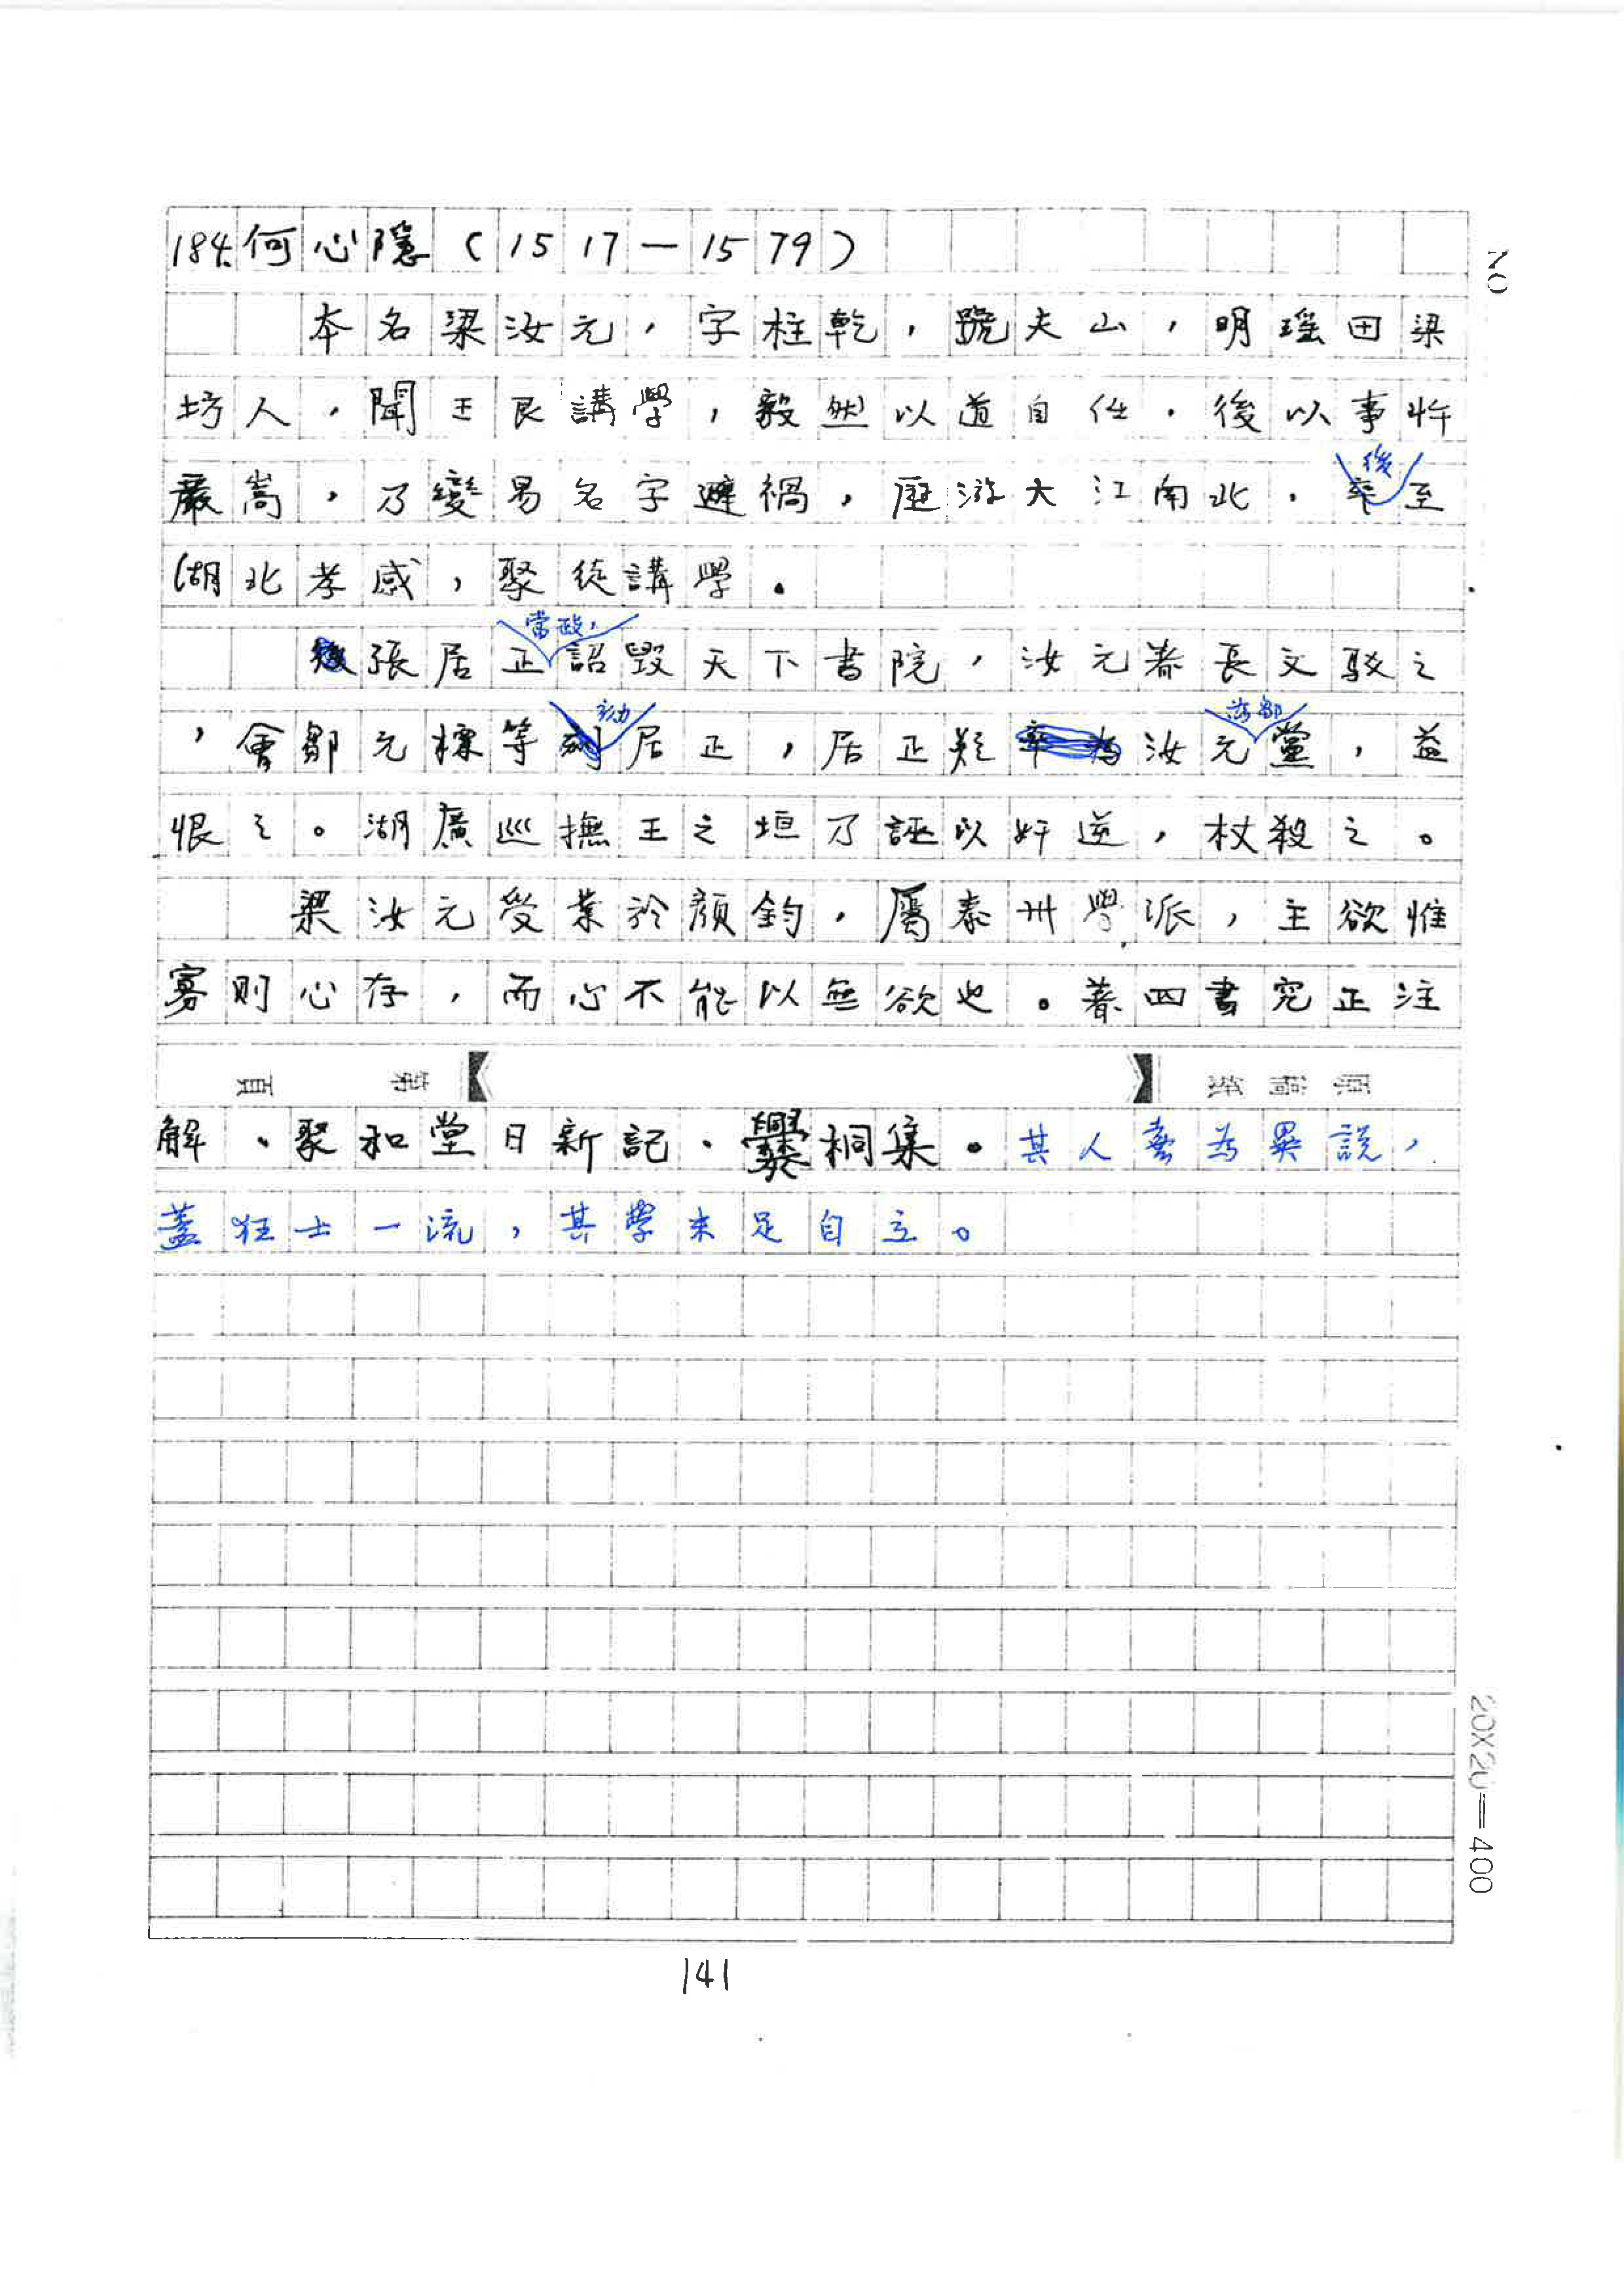 70
184.何心隱(1517—1579)
本名梁汝元,字柱乾,號夫山,明瑤田梁
坊人,聞王艮講學,毅然以道自任,後以事忤
嚴嵩,乃變易名字避禍,歷游大江南北,後至
湖北孝感,聚徒講學。
張居正當政,詔毀天下書院,汝元著長文駁之
,會鄒元標等劾居正,居正疑汝元為鄒黨,益
恨之。湖廣巡撫王之垣乃誣以奸逆,杖殺之。
梁汝元受業於顏鈞,屬泰州學派,主欲惟
寡則心存,而心不能以無欲也。著四書究正注
原稿紙 第 頁
解、聚和堂日新記、爨桐集。其人喜為異說,
蓋狂士一流,其學未足自立。
20X20=400
141